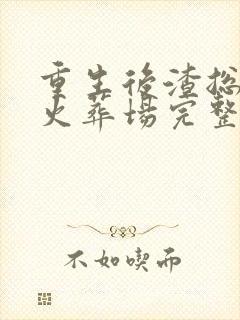 重生後渣總
火葬場完整
不如喫而